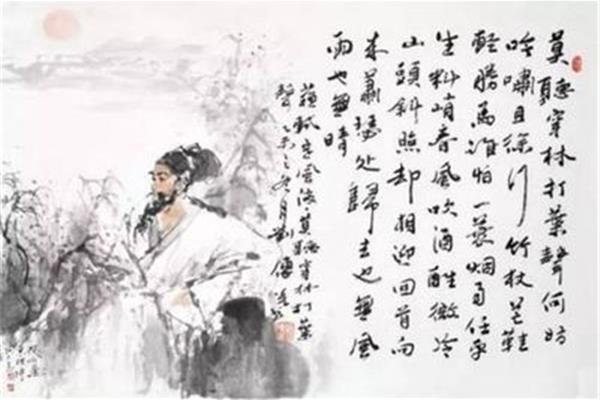 莫聽穿林打葉聲何妨
吟嘯且徐行竹杖芒鞋
輕勝馬誰怕一蓑烟雨任平
生料峭春風吹酒醒微冷
山頭斜照却相迎回首向
来蕭瑟处歸去也無風
雨也無晴
蘇軾定風波莫聽穿林打葉
聲